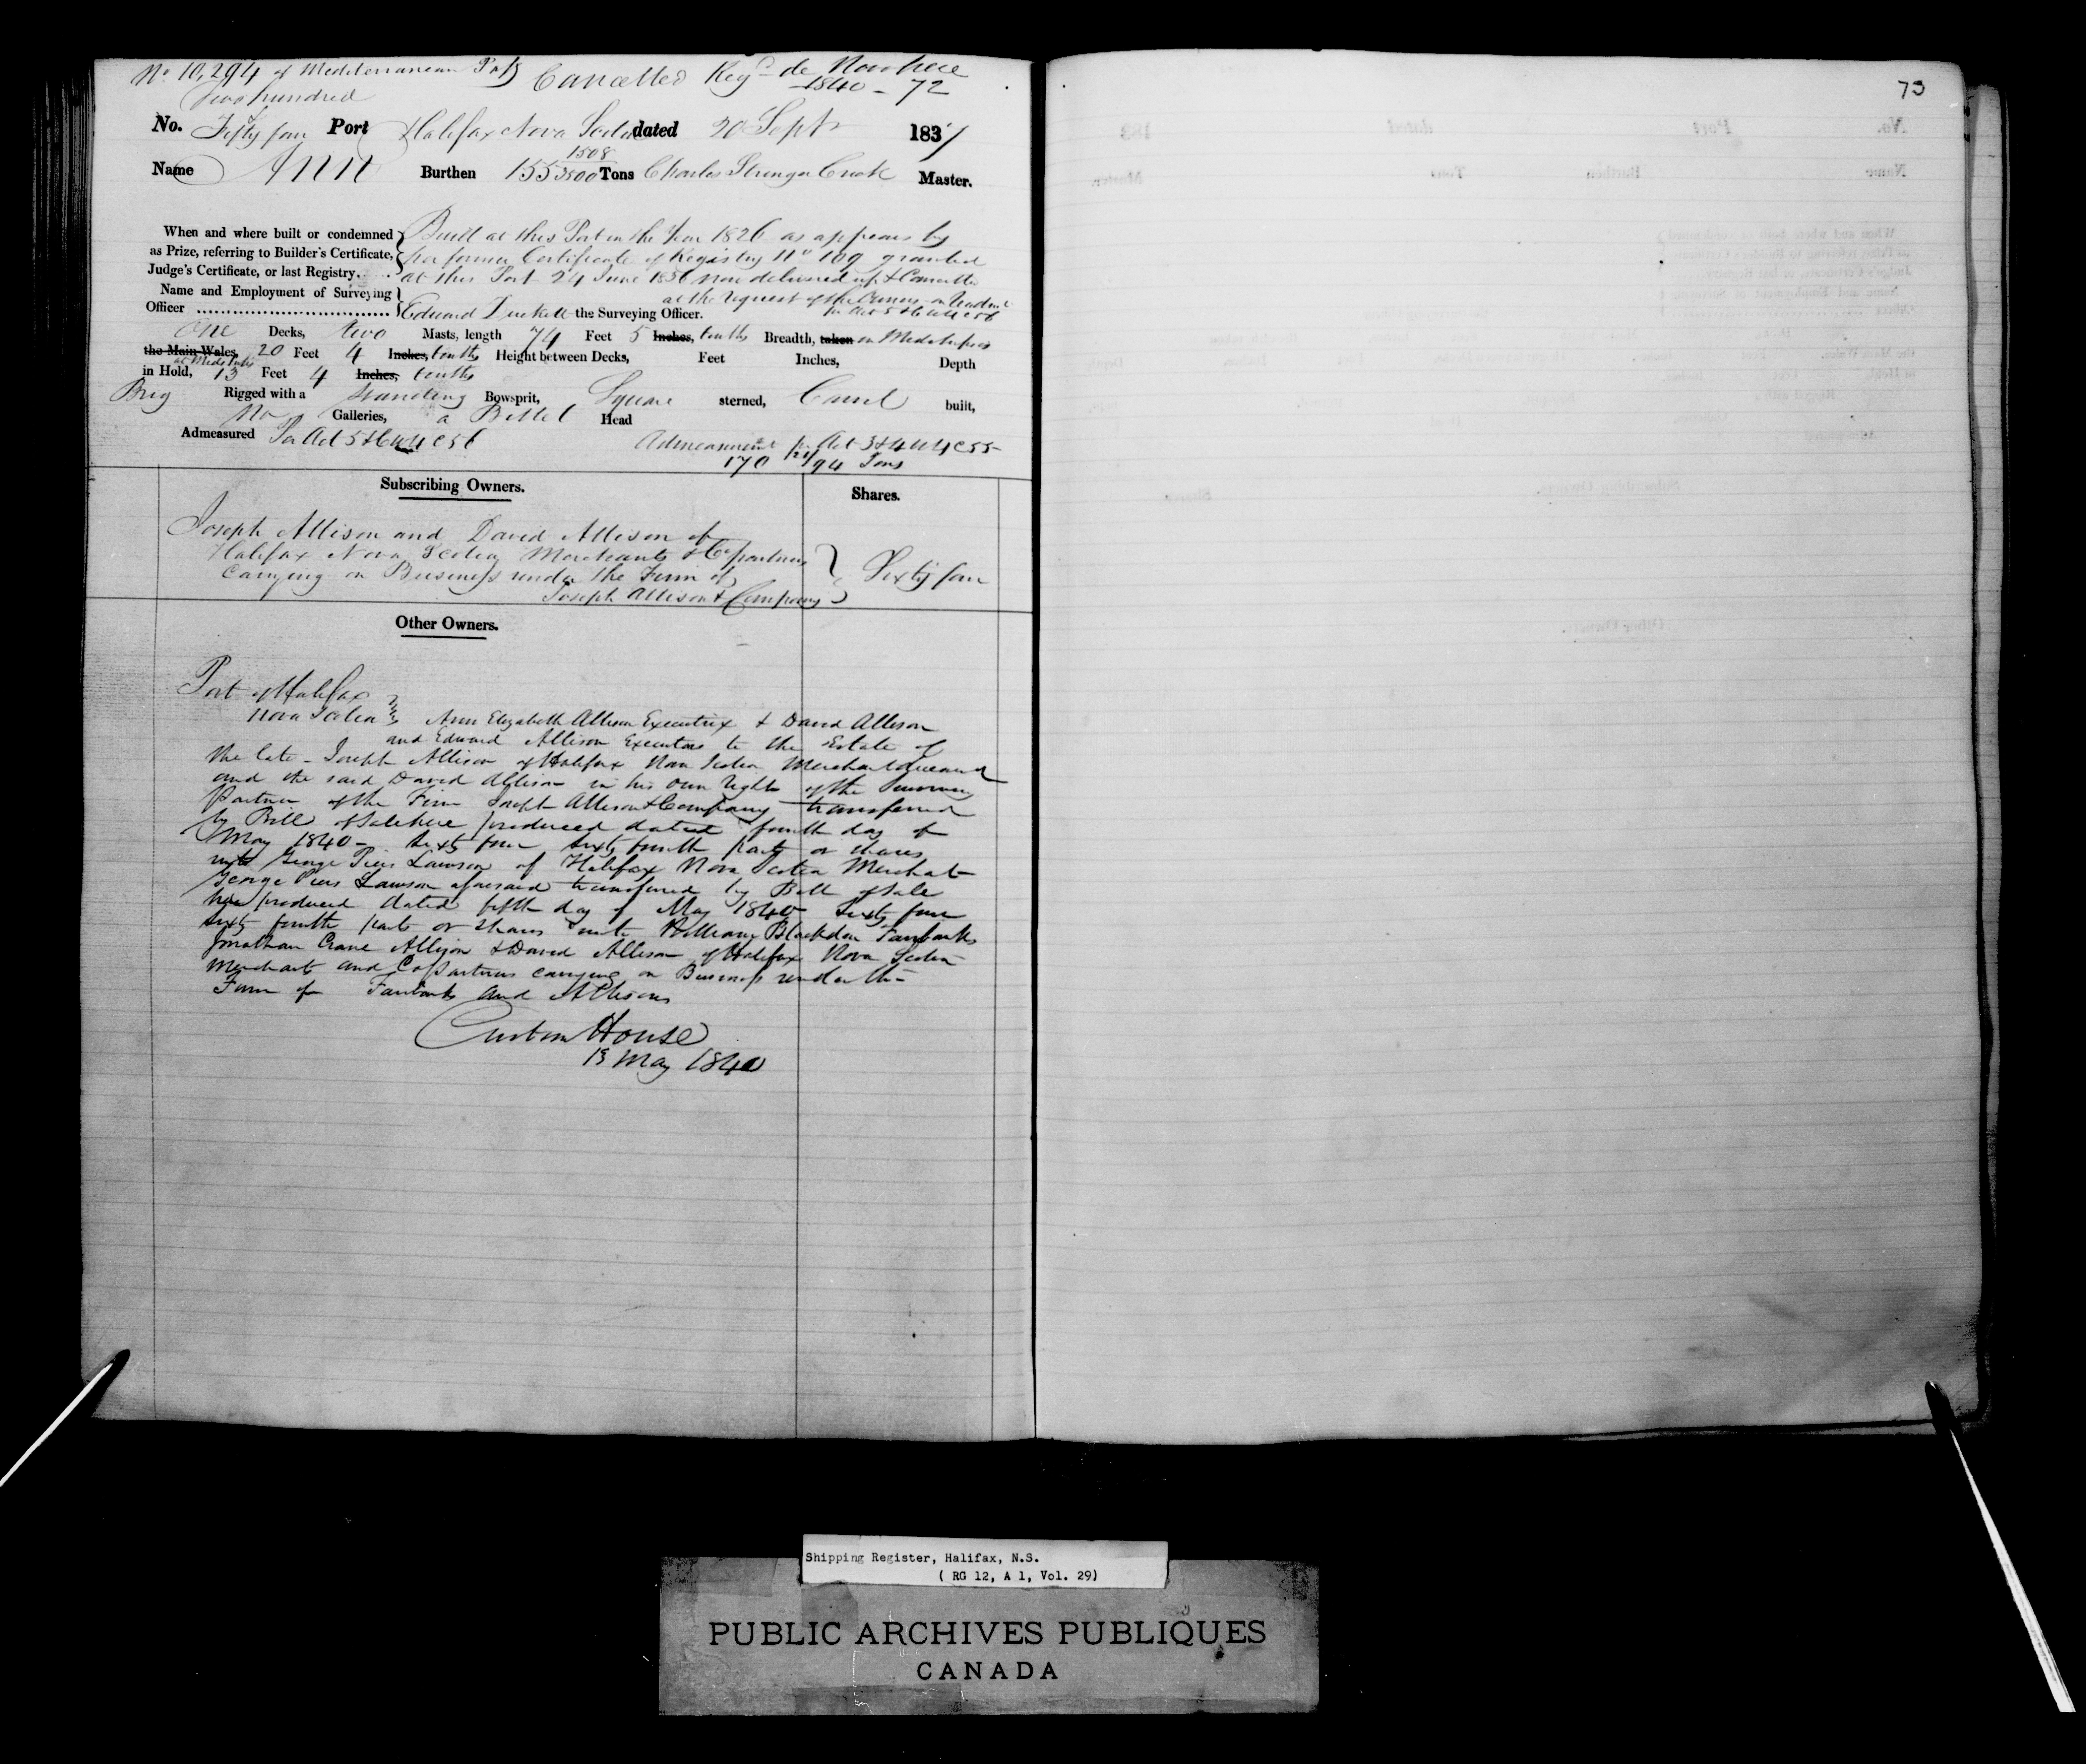 No 10,294 of Mediterranean Cancelled Regd de
1840 - 72
Two hundred
No. Fifty four Port Halifax Nova Scotia dated 20 Sept 1837
Name Ann Burthen 155 1508/3500 Tons Charles Stringer Master.
When and where built or condemned as Prize, referring to Builder's Certificate, Judge's Certificate, or last Registry.
Built at this Port in the Year 1826 as appears by
former Certificate of Registry No 109 granted
at this Port 24 June 1836 now delivered up & Cancelled
at the request of the Owners
Pr Act 5 & 6 W 4 C 56
Name and Employment of Surveying Officer
Edward Duckett the Surveying Officer.
One Decks, two Masts, length 74 Feet 5 Inches, tenths Breadth, taken in Midships
the Main Wales, 20 Feet 4 Inches, tenths Height between Decks, Feet Inches, Depth
at Midships
in Hold, 13 Feet 4 Inches, tenths
Brig Rigged with a Standing Bowsprit, Square sterned, Carvel built,
No Galleries, a Billet Head
Admeasured Per Act 5 & 6 W 4 C 56 Admeasurement pr Act 3 & 4 W 4 C 55
170 /94 Tons
Subscribing Owners. Shares.
Joseph Allison and David Allison of
Halifax Nova Scotia Merchants & Copartners
Carrying on Business under the Firm of
Joseph Allison & Company
Sixty four
Other Owners.
Port of Halifax
Nova Scotia Ann Elizabeth Allison Executrix & David Allison
and Edward Allison Executors to the Estate of
the late Joseph Allison of Halifax Nova Scotia Merchant deceased
and the said David Allison in his own right of the surviving
Partner of the Firm Joseph Allison & Company transferred
by Bill of Sale here produced dated fourth day of
May 1840 - Sixty four sixty fourth parts or shares
unto George Piers Lawson of Halifax Nova Scotia Merchant
George Piers Lawson aforesaid transferred by Bill of Sale
here produced dated fifth day of May 1840 Sixty four
sixty fourth parts or shares unto William Blackdon Fairbanks
Jonathan Crane Allison & David Allison of Halifax Nova Scotia
Merchants and Copartners carrying on Business under the
Firm of Fairbanks and Allisons
Custom House
13 May 1840
73
Shipping Register, Halifax, N.S.
( RG 12, A 1, Vol. 29)
PUBLIC ARCHIVES PUBLIQUES
CANADA